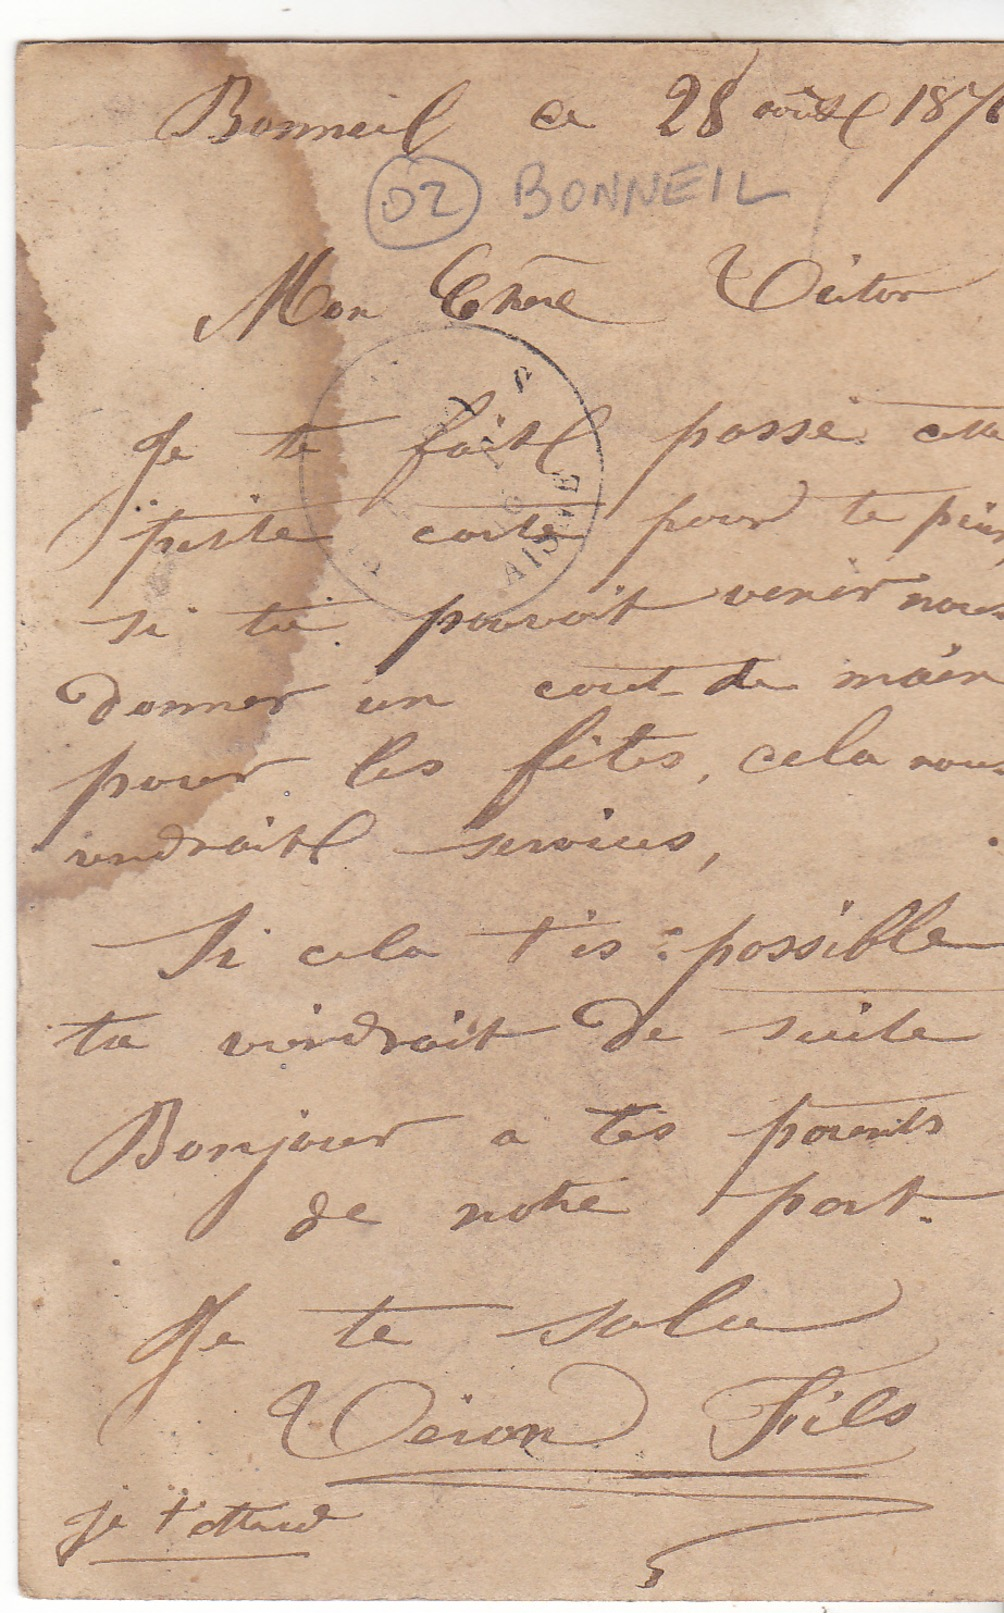 Bonneil ce 28 août 1876
02 BONNEIL
Mon Chere Victor
Je te fait passé cette
petite carte pour te
si tu pouvait venir nous
donner un cout de main
pour les fêtes, cela nous
rendrait services,
Si cela t'es possible
tu viendrait de suite
Bonjour a tes parents
de notre part.
Je te salue
Véron Fils
je t'attend
AISNE